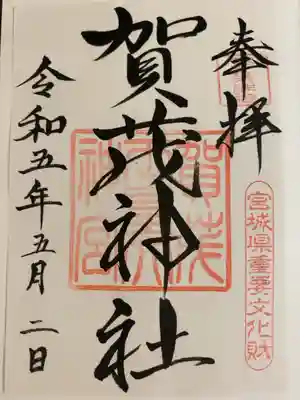 奉拝
宮城県重要文化財
賀茂神社
令和五年五月二日